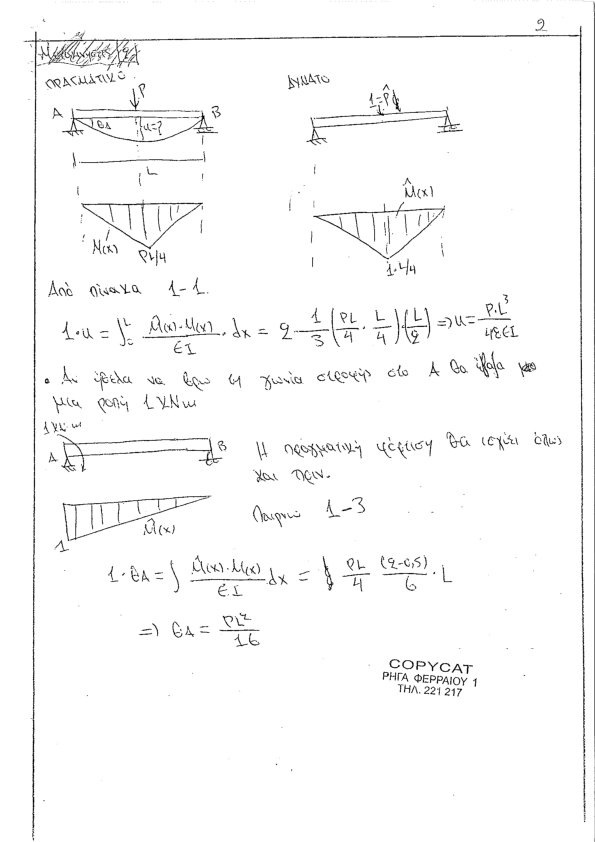 9
ΠΡΑΓΜΑΤΙΚΟ
ΔΥΝΑΤΟ
P
1=P̂
A
B
θA
u=?
L
M(x)
PL/4
M̂(x)
1·L/4
Από πίνακα 1-1.
1·u = ∫₀ᴸ M̂(x)·M(x)/EI · dx = 2 · 1/3 (PL/4 · L/4)·(L/2) => u = P·L³/48EI
• Αν ήθελα να βρω τη γωνία στροφής στο A θα έβαζα
μια ροπή 1 KNm
1 KN·m
A
B
Η πραγματική φόρτιση θα ισχύει όπως
και πριν.
M̂(x)
1
Παίρνω 1-3
1·θA = ∫ M̂(x)·M(x)/EI dx = PL/4 (2-0,5)/6 · L
=> θA = PL²/16
COPYCAT
ΡΗΓΑ ΦΕΡΡΑΙΟΥ 1
ΤΗΛ. 221 217